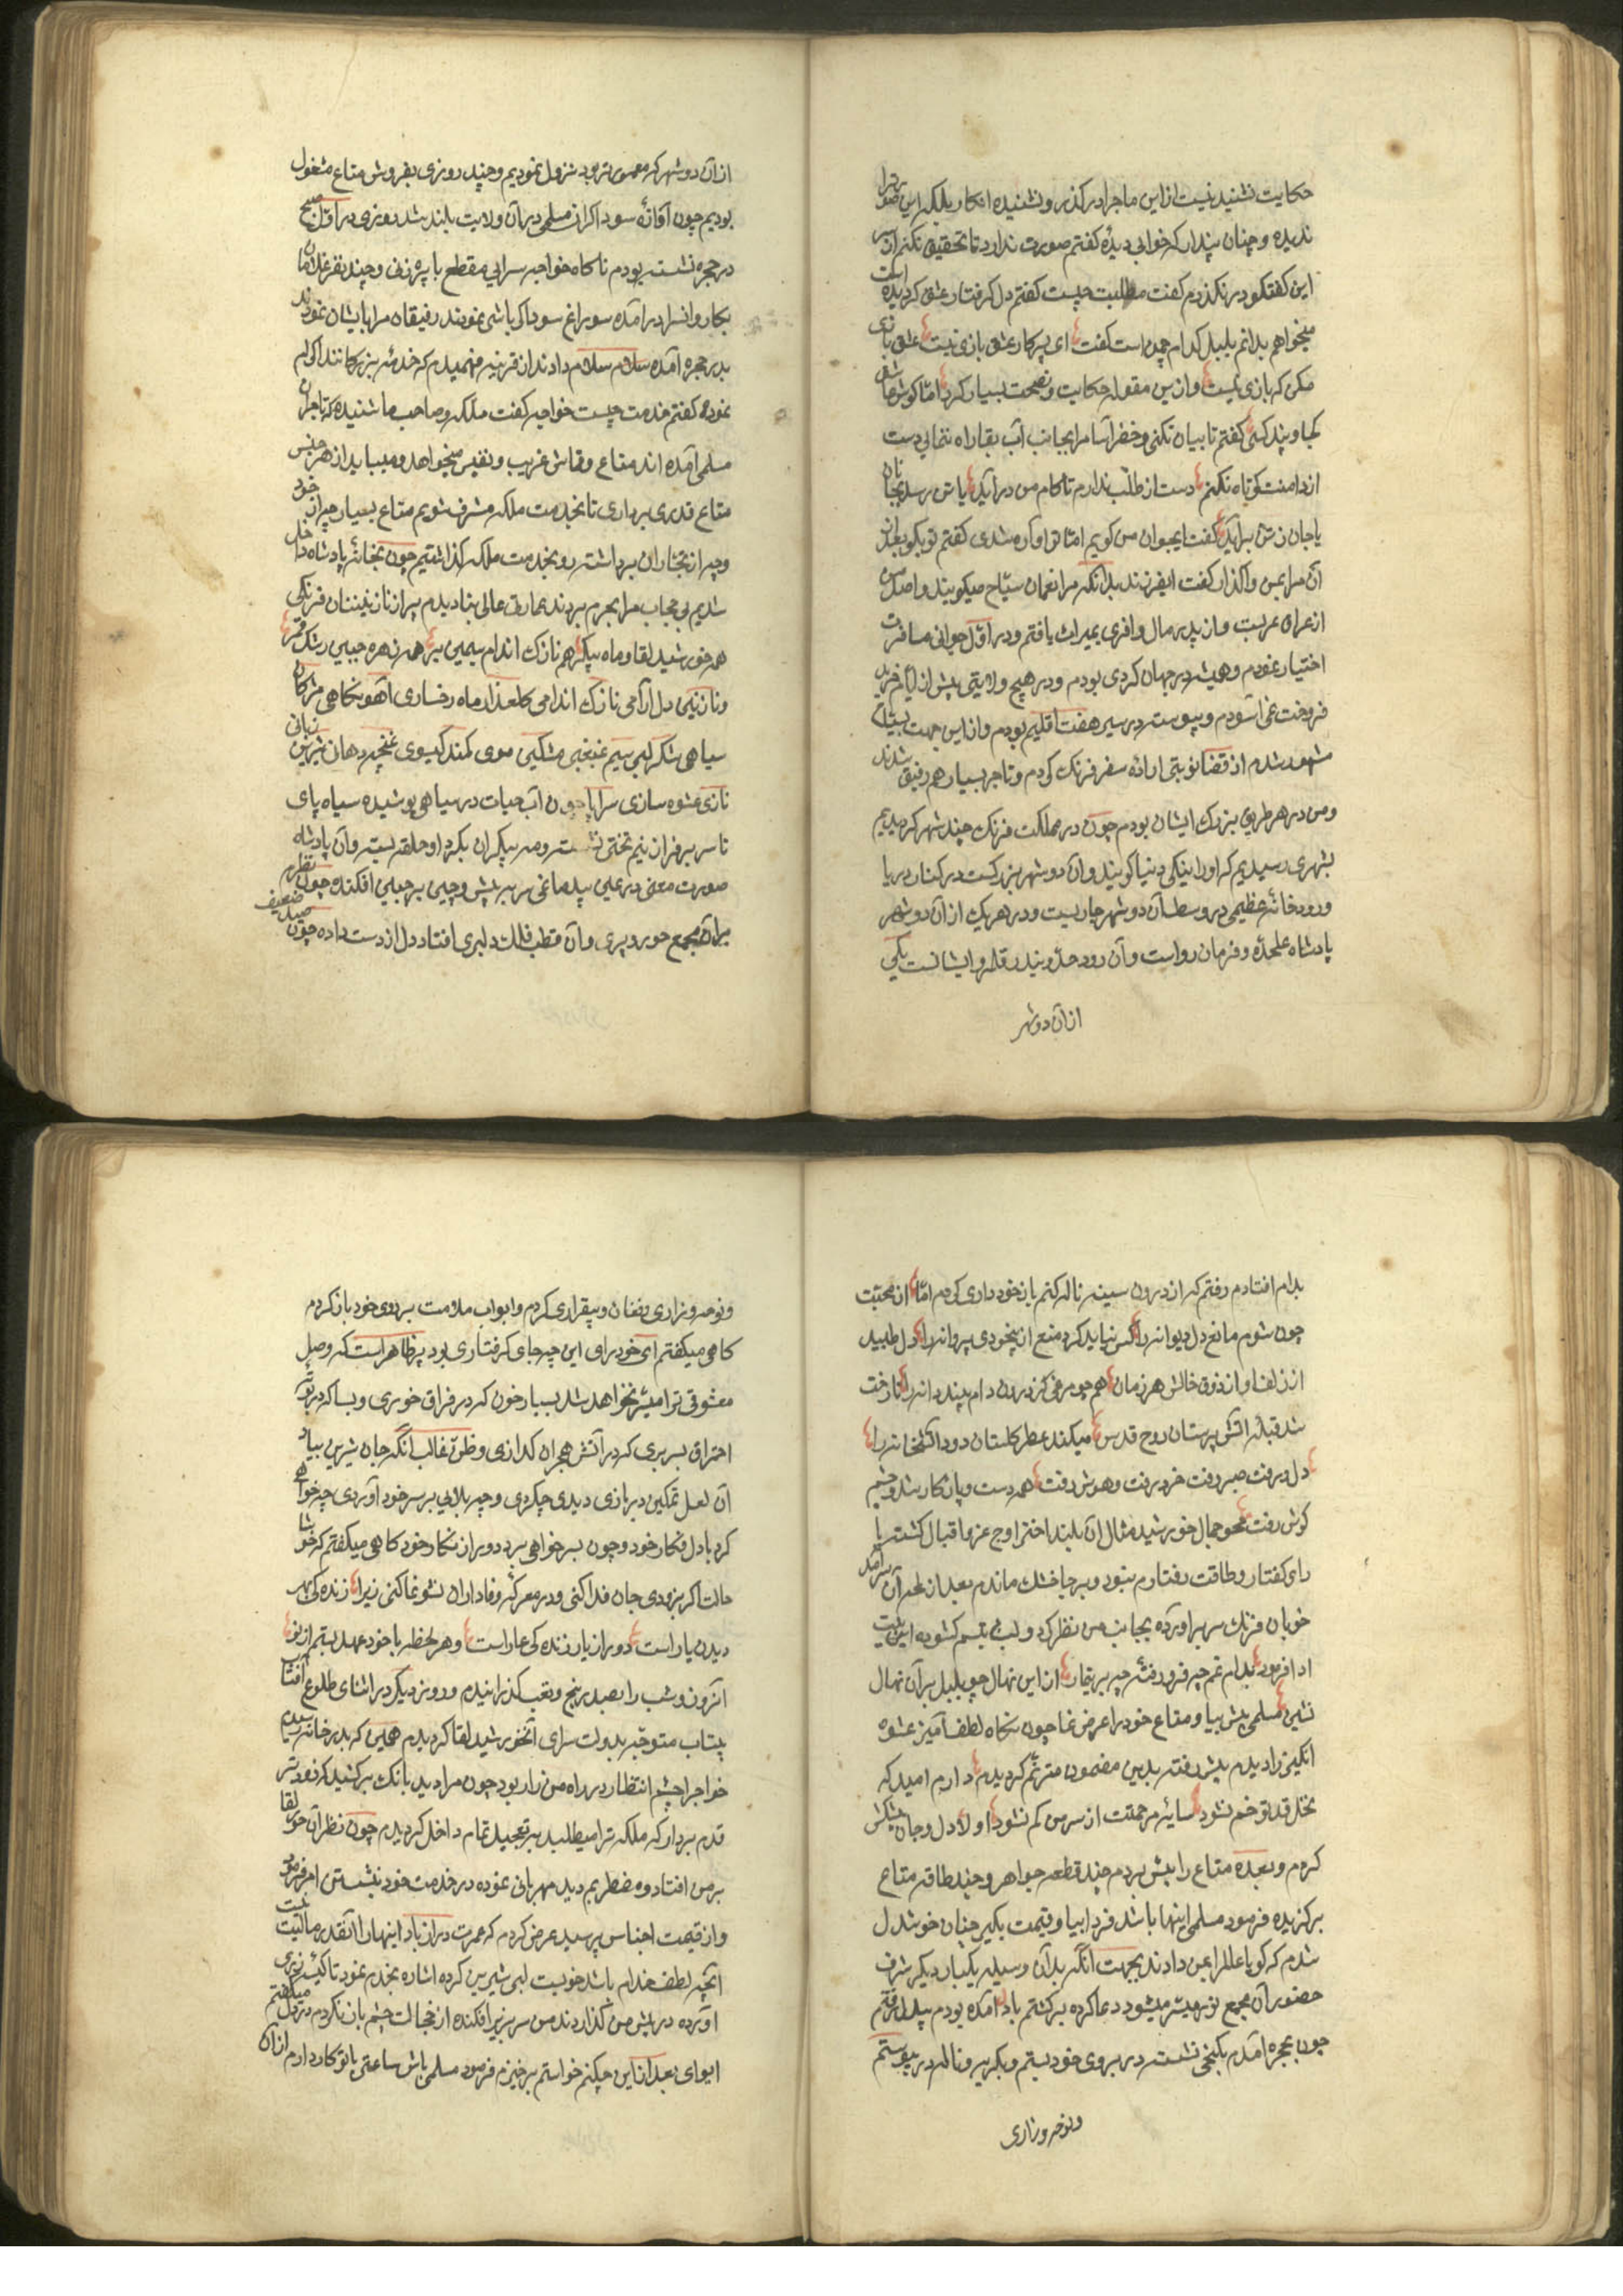 حکایت نشنید نیست ازاین ماجرا درگذر و نشنیده انکار بلکه این صورترا
ندیده و چنان پندار که خوابی دیدهٔ گفتم صورت ندارد تا تحقیق نکنم از سر
این گفتگو درنگذرم گفت مطلبت چیست گفتم دل گرفتار عشق گردیده است
میخواهم بدانم بلبل کدام چمن است گفت ای پسر کار عشق بازی نیست عشق بازی
مکن که بازی نیست و ازین مقوله حکایت و نصیحت بسیار کرد امّا گوش عاشق
کجا و پند کسی گفتم تا بیان نکنی و خضرآسا مرا بجانب آب بقا راه ننمایی دست
از دامنت کوتاه نکنم دست از طلب ندارم تا کام من برآید یا تن رسد بجانان
یا جان ز تن برآید گفت ایجوان من گویم امّا تو آواره شدی گفتم تو بگو بعد از
آن مرا بمن واگذار گفت ایفرزند بدانکه مرا نعمان سیّاح میگویند و اصل من
از عراق عربست و از پدر مال وافری بمیراث یافتم و در اوّل جوانی مسافرت
اختیار نمودم و همیشه در جهان گردی بودم و در هیچ ولایتی بیش از ایّام خرید
فروخت نمی آسودم و پیوسته در سیر هفت اقلیم بودم و ازاین جهت بسیّاح
مشهور شدم از قضا نوبتی ارادهٔ سفر فرنگ کردم و تاجر بسیار همرفیق شدند
و من در هر طریق بزرگ ایشان بودم چون در مملکت فرنگ چند شهر گردیدیم
بشهری رسیدیم که اورا ینگی دنیا گویند و آن دو شهر بزرگست در کنار دریا
و رودخانهٔ عظیمی در وسط آن دو شهر جاریست و در هر یک از آن دو شهر
پادشاه علیحده و فرمان رواست و آن رود حدّ و بند قلمرو ایشانست یکی
ازآن دو شهر
ازآن دو شهر که معمورتر بود نزول نمودیم و چند روزی بفروش متاع مشغول
بودیم چون آوازهٔ سوداگران مسلمی در آن ولایت بلند شد روزی در اوّل صبح
در حجره نشسته بودم ناگاه خواجه سرایی مقطع با پیره زنی و چند نفر غلامان
بکاروانسرا درآمده سوراغ سوداگر باشی نمودند رفیقان مرا بایشان نمودند
بدر حجره آمده سلام سلام دادند از قرینه فهمیدم که خدمهٔ بزرگانند اکرام
نموده گفتم خدمت چیست خواجه گفت ملکه و صاحب ما شنیده که تاجران
مسلمی آمده اند متاع و قماش غریب و نفیس میخواهد و میباید از هر جنس
متاع قدری برداری تا بخدمت ملکه مشرف شویم متاع بسیار چه از خود
و چه از تجّاران برداشته رو بخدمت ملکه گذاشتیم چون بخانهٔ پادشاه داخل
شدیم بی حجاب مرا بحرم بردند عمارتی عالی بنا دیدم پر از نازنینان فرنگی
همه خورشید لقا و ماه پیکر هم نازک اندام سیمین بر همه زهره جبین رشک قمر
و نازنینی دل آرامی نازک اندامی گلعذار ماه رخساری آهو نگاهی مژگان
سیاهی شکر لبی سیم غبغبی مشکین موی کمند گیسوی غنچه دهان شیرین زبانی
نازی عشوه سازی سراپا چون آب حیات در سیاهی پوشیده سیاه پای
تا سر بر فراز نیم تختی نشسته و مه پیکران بگرد او حلقه بسته و آن پادشاه
صورت معنی در عین بیدماغی سر بر پیش و چین بر جبین افکنده چون نظرم
برآن مجمع حور و پری و آن قطب فلک دلبری افتاد دل از دست داده چون صید ضعیف
بدام افتادم رفتم که از درون سینه ناله کنم باز خودداری کردم امّا از محبّت
چون شوم مانع دل دیوانه را کس نباید کرد منع از بیخودی پروانه را دل طپید
از زلف او از ذوق خالش هر زمان هم چو مرغی کز درون دام بیند دانه را تا رخت
شد قبلهٔ آتش پرستان روح قدس میکند عطر گلستان دود آتشخانه را
دل برفت صبر رفت خرد برفت و هوش رفت همه دست و پا از کار شد و چشم
گوش رفت محو جمال خورشید مثال آن بلند اختر اوج عز و اقبال گشته یا
رای گفتار و طاقت رفتارم نبود و بر جا خشک ماندم بعد از لمحهٔ آن سرآمد
خوبان فرنگ سر برآورده بجانب من نظر کرد و لب بتبسم گشوده این بیت
ادا فرمود بدام غم چه فرو رفتهٔ چه بر بیقار ازاین نهال چو بلبل برآن نهال
نشین مسلمی پیش بیا و متاع خود را عرض نما چون نگاه لطف آمیز عشوه
انگیز را دیدم پیش رفته بدین مضمون مترنّم گردیدم دارم امید که
نخل قد تو خم نشود سایهٔ مرحمتت از سر من کم نشود اولا دل و جان پیشکش
کردم و بعده متاع را پیش بردم چند قطعه جواهر و چند طاقه متاع
برگزیده فرمود مسلمی اینها باشد فردا بیا و قیمت بگیر چنان خوشدل
شدم که گویا عالم را بمن دادند بجهت آنکه بدآن وسیله یکبار دیگر شرف
حضور آن مجمع نور میسّر میشود دعا کرده برگشتم با دل آمده بودم بیدل رفتم
چون بحجره آمدم بکنجی نشسته در بروی خود بستم و بگریه و ناله درپیوستم
و نوحه و زاری
و نوحه و زاری و فغان و بیقراری کردم و ابواب ملامت بر روی خود باز کردم
گاهی میگفتم ای خودرای این چه جای گرفتاری بود پر ظاهر است که وصل
معشوقی ترا میسّر نخواهد شد بسیار خون که در فراق خوری و بسا که در بوتهٔ
احتراق بسر بری که در آتش هجران گدازی و ظنّ غالب آنکه جان شیرین بیاد
آن لعل نمکین دربازی دیدی چکردی و چه بلایی بر سر خود آوردی چه خواهی
کرد با دل فکار خود و چون بسر خواهی برد دور از نگار خود گاهی میگفتم که خوشا
حالت اگر بزودی جان فدا کنی و در معرکهٔ وفاداران نشو نما کنی زیرا زنده کی بهر
دیدن یار است دور از یار زنده کی عار است و هر لحظه با خود عهد بستم از نو
آنروز و شب را بصد رنج و تعب گذرانیدم و روز دیگر در اثنای طلوع آفتاب
بیتاب متوجّه بدولت سرای آنخورشید لقا گردیدم همین که بدر خانه رسیدم
خواجه را چشم انتظار در راه من زار بود چون مرا دید بانگ برکشید که زودتر
قدم بردار که ملکه ترا میطلبد بتعجیل تمام داخل گردیدم چون نظر آن حور لقا
بر من افتاد و مضطربم دید مهربانی نموده در خدمت خود نشستن امر فرمود
و از قیمت اجناس پرسید عرض کردم که عمرت دراز باد اینهارا آنقدر مالیّت نیست
آنچه لطف خدام باشد خوبست لبی شیرین کرده اشاره بخدم نمود تا کیسهٔ زری
آورده در پیش من گذاردند من سر بزیر افکنده از خجالت چشم باز نکردم در دل میگفتم
ایوای بعد ازاین چکنم خواستم برخیزم فرمود مسلمی باش ساعتی با تو کار دارم ازآن